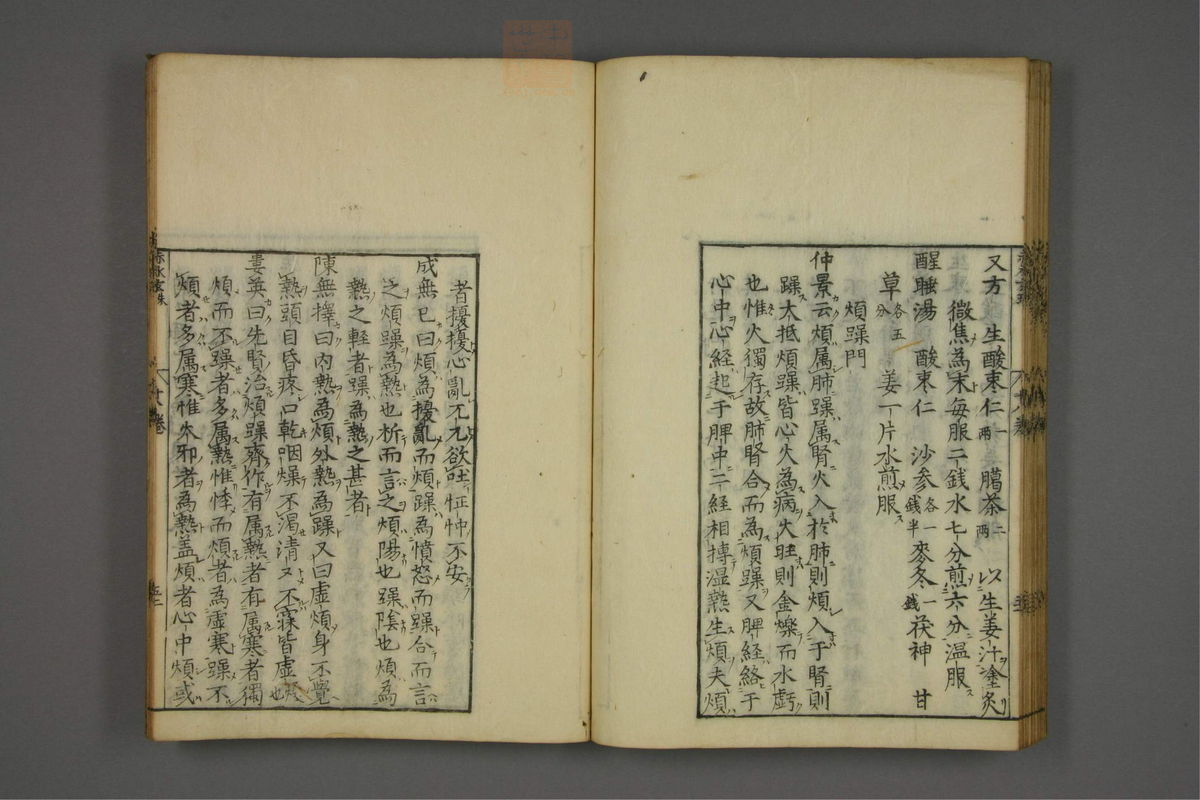 又方 生酸棗仁一两 臈茶二两 以生姜汁塗炙
微焦為末毎服二錢水七分煎六分温服
醒睡湯 酸棗仁 沙参各一錢半 麥冬一錢 茯神 甘
草各五分 姜一片水煎服
煩躁門
仲景云煩属肺躁属腎火入於肺則煩入于腎則
躁大抵煩躁皆心火為病火旺則金爍而水虧
也惟火獨存故肺腎合而為煩躁又脾經絡于
心中心經起于脾中二經相搏湿熱生煩夫煩
者擾擾心亂兀兀欲吐怔忡不安
成無已曰煩為擾亂而煩躁為憤怒而躁合而言
之煩躁為熱也析而言之煩陽也躁陰也煩為
熱之軽者躁為熱之甚者
陳無擇曰内熱為煩外熱為躁又曰虚煩身不覺
熱頭目昏疼口乾咽燥不渇清々不寐皆虚煩也
婁英曰先賢治煩躁齊作有属熱者有属寒者獨
煩而不躁者多属熱惟悸而煩者為虚寒躁不
煩者多属寒惟火邪者為熱盖煩者心中煩或
赤水玄珠
十八卷